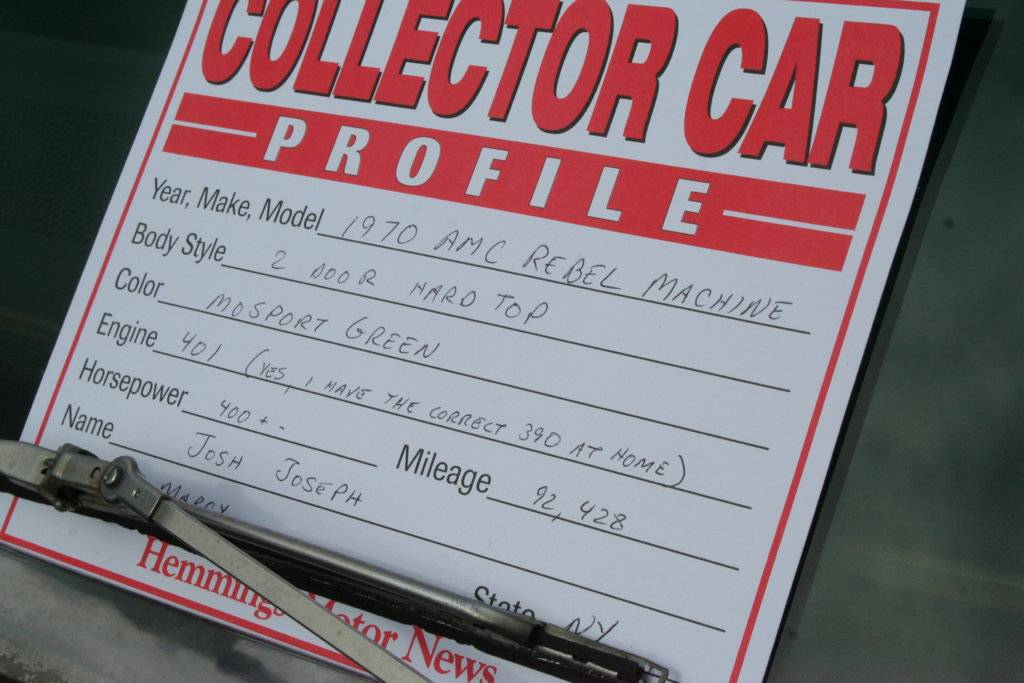 COLLECTOR CAR
PROFILE
Year, Make, Model 1970 AMC REBEL MACHINE
Body Style 2 DOOR HARD TOP
Color MOSPORT GREEN
Engine 401 (YES, I HAVE THE CORRECT 390 AT HOME)
Horsepower 400 +- Mileage 92,428
Name JOSH JOSEPH
MARCY State NY
Hemmings Motor News